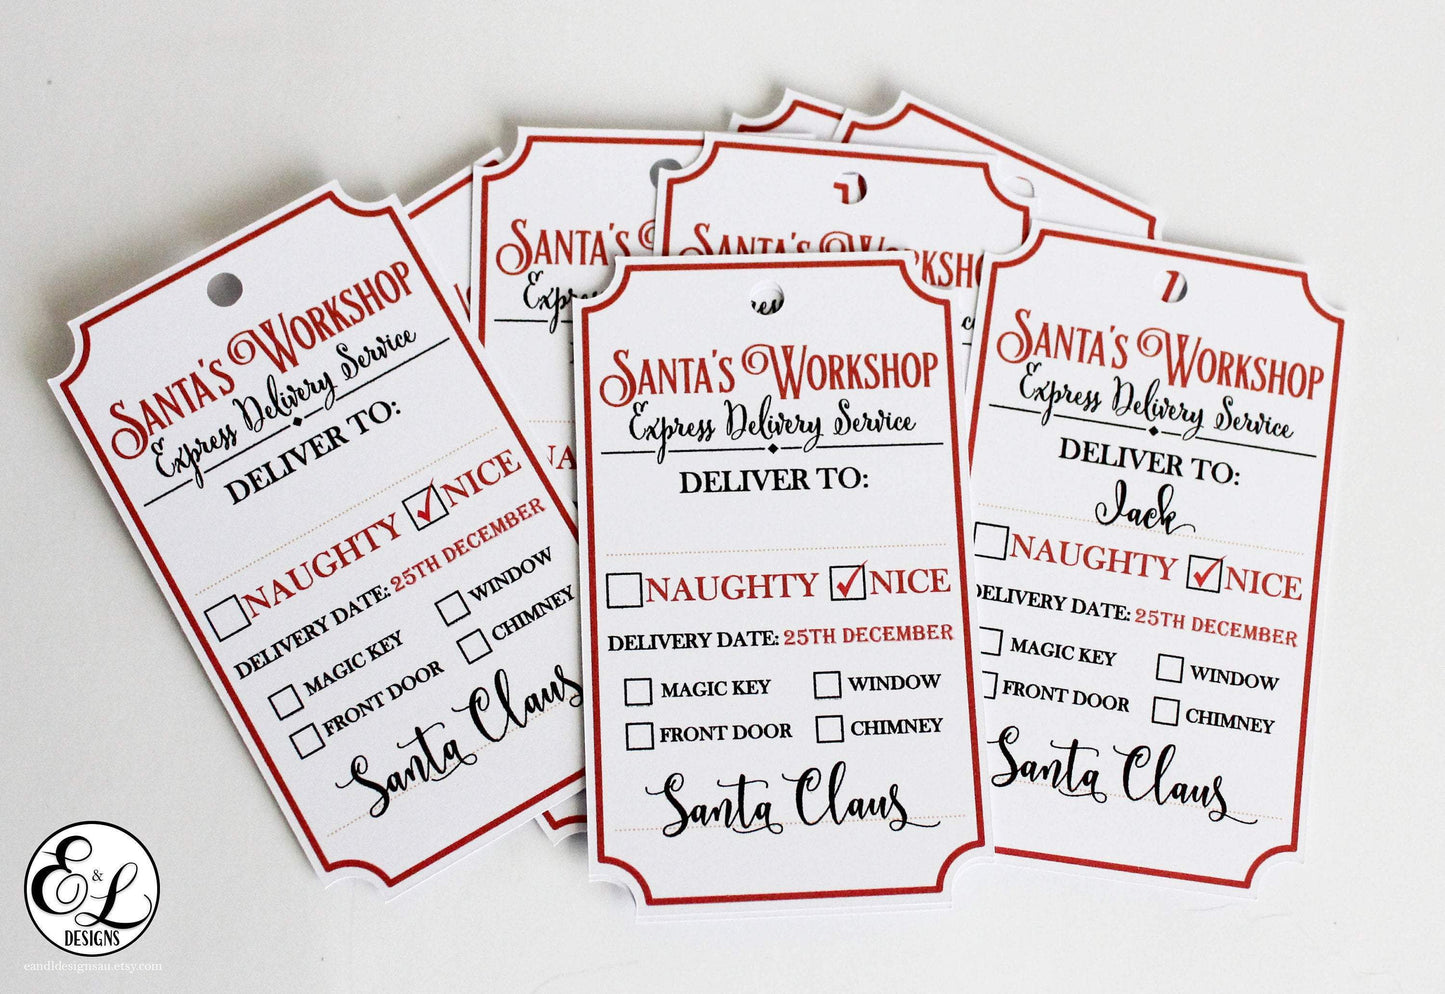 SANTA'S WORKSHOP
Express Delivery Service
DELIVER TO:
NAUGHTY NICE
DELIVERY DATE: 25TH DECEMBER
MAGIC KEY WINDOW
FRONT DOOR CHIMNEY
Santa Claus
SANTA'S
SANTA'S
SANTA'S WORKSHOP
Express Delivery Service
DELIVER TO:
NAUGHTY NICE
DELIVERY DATE: 25TH DECEMBER
MAGIC KEY WINDOW
FRONT DOOR CHIMNEY
Santa Claus
SANTA'S WORKSHOP
Express Delivery Service
DELIVER TO:
Jack
NAUGHTY NICE
DELIVERY DATE: 25TH DECEMBER
MAGIC KEY WINDOW
FRONT DOOR CHIMNEY
Santa Claus
E & L
DESIGNS
eandldesignsau.etsy.com